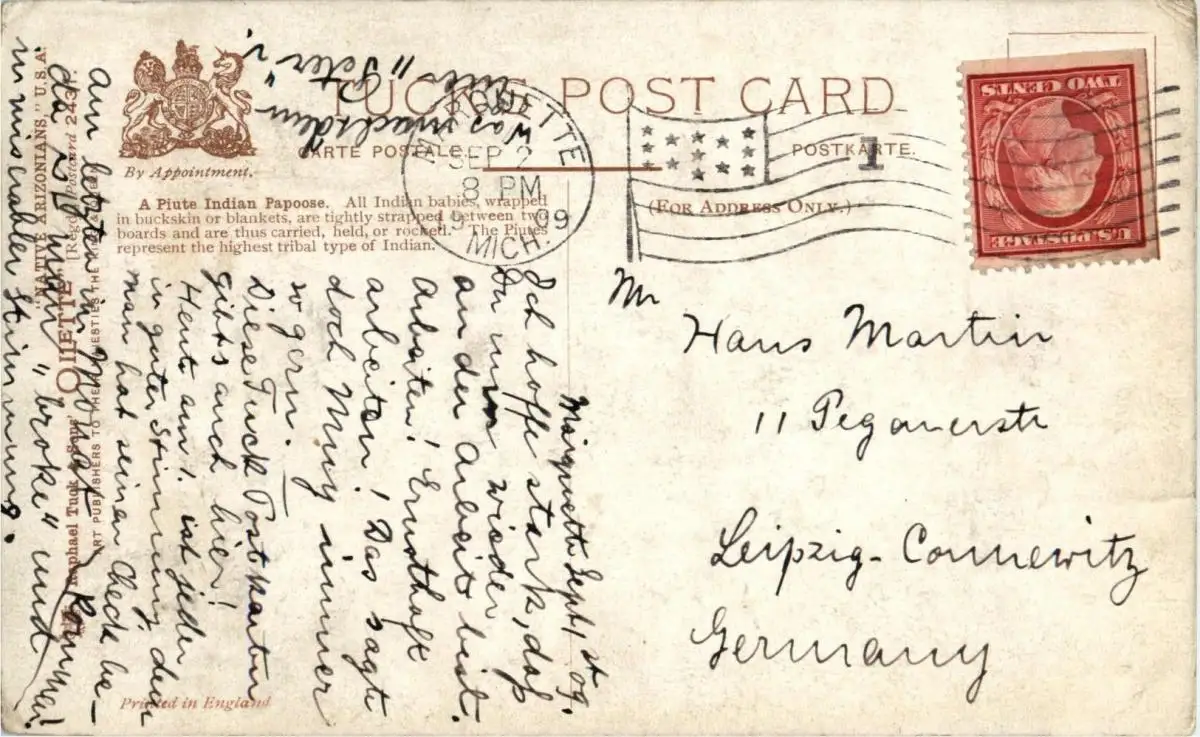 TUCK'S POST CARD
CARTE POSTALE.
POSTKARTE.
(FOR ADDRESS ONLY.)
By Appointment.
A Piute Indian Papoose. All Indian babies, wrapped
in buckskin or blankets, are tightly strapped between two
boards and are thus carried, held, or rocked. The Piutes
represent the highest tribal type of Indian.
MARQUETTE
SEP 2
8 PM
1909
MICH.
1
U.S. POSTAGE
TWO CENTS
Mr
Hans Martin
11 Pegauerstr
Leipzig-Connewitz
Germany
Marquette Sept 1st 09.
Ich hoffe stark, daß
Du nun wieder
an der Arbeit bist.
Arbeiten! Ernsthaft
arbeiten! Das sagte
doch Muy immer
so gern.
Diese Tuck Postkarten
gibts auch hier!
Heute am 1. ist jeder
in guter Stimmung, denn
man hat seinen Check be-
kommen!
Am letzten im Monat,
da ist man "broke" und
in miserabler Stimmung.
Was macht denn
unser
"Peter"?
"NATIVE ARIZONIANS," U.S.A.
"OILETTE" [Regd.] Postcard 2431.
Raphael Tuck & Sons'
ART PUBLISHERS TO THEIR MAJESTIES THE KING & QUEEN
Printed in England